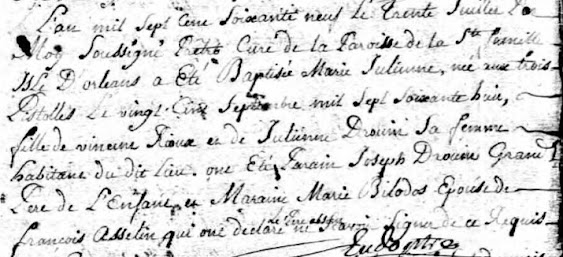 L'an mil Sept Cent Soixante neuf le trente Juillet Par
Moy Soussigné Pretre Curé de la Paroisse de la Ste famille
Isle D'orleans a Eté Baptisée Marie Julienne, née aux trois
Pistolles Le vingt Cinq Septembre mil Sept Soixante huit,
fille de vincent Rioux et de Julienne Drouin Sa femme
habitant du dit Lieu. ont Eté Parain Joseph Drouin Grand
Pere de L'Enfant, et Maraine Marie Bilodos Epouse de
François Asselin, qui ont declaré ne Savoir Signer de ce Requis